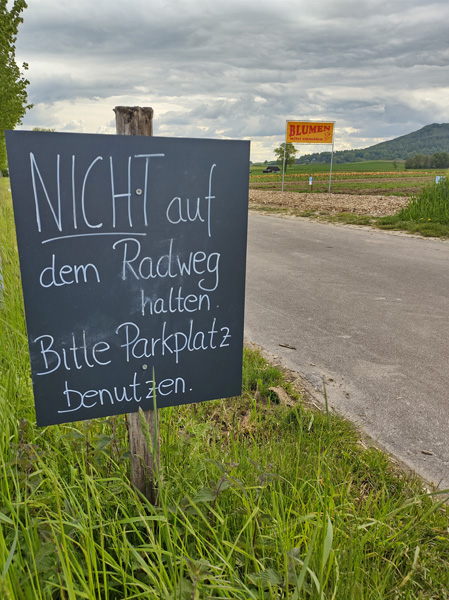 NICHT auf
dem Radweg
halten.
Bitte Parkplatz
benutzen.
BLUMEN